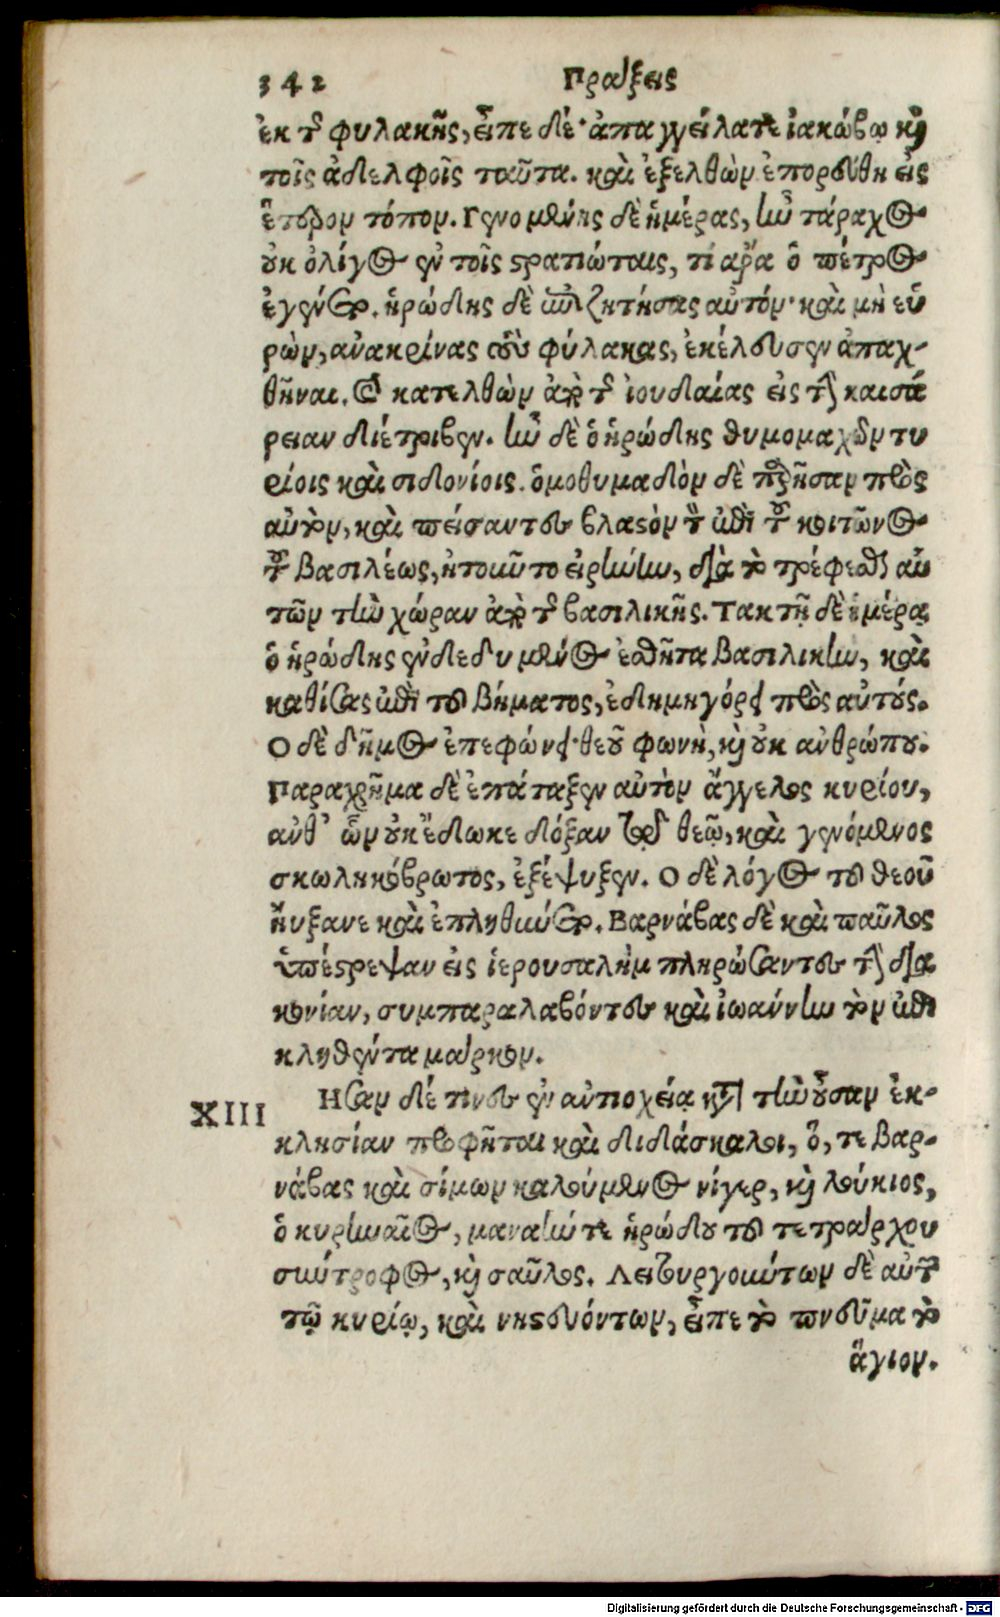 342 Πράξεις
ἐκ τῆς φυλακῆς, εἶπε δέ· ἀπαγγείλατε ἰακώβῳ καὶ
τοῖς ἀδελφοῖς ταῦτα. καὶ ἐξελθὼν ἐπορεύθη εἰς
ἕτερον τόπον. Γενομένης δὲ ἡμέρας, ἦν τάραχος
οὐκ ὀλίγος ἐν τοῖς στρατιώταις, τί ἄρα ὁ πέτρος
ἐγένετο. ἡρώδης δὲ ἐπιζητήσας αὐτόν· καὶ μὴ εὑ
ρὼν, ἀνακρίνας τοὺς φύλακας, ἐκέλευσεν ἀπαχ-
θῆναι. Καὶ κατελθὼν ἀπὸ τῆς ἰουδαίας εἰς τὴν καισά
ρειαν διέτριβεν. ἦν δὲ ὁ ἡρώδης θυμομαχῶν τυ
ρίοις καὶ σιδονίοις. ὁμοθυμαδὸν δὲ παρῆσαν πρὸς
αὐτὸν, καὶ πείσαντες βλαστὸν τὸν ἐπὶ τοῦ κοιτῶνος
τοῦ βασιλέως, ᾐτοῦντο εἰρήνην, διὰ τὸ τρέφεσθαι αὐ
τῶν τὴν χώραν ἀπὸ τῆς βασιλικῆς. Τακτῇ δὲ ἡμέρᾳ
ὁ ἡρώδης ἐνδεδυμένος ἐσθῆτα βασιλικὴν, καὶ
καθίσας ἐπὶ τοῦ βήματος, ἐδημηγόρει πρὸς αὐτούς.
Ο δὲ δῆμος ἐπεφώνει· θεοῦ φωνὴ, καὶ οὐκ ἀνθρώπου.
Παραχρῆμα δὲ ἐπάταξεν αὐτὸν ἄγγελος κυρίου,
ἀνθ’ ὧν οὐκ ἔδωκε δόξαν τῷ θεῷ, καὶ γενόμενος
σκωληκόβρωτος, ἐξέψυξεν. Ο δὲ λόγος τοῦ θεοῦ
ηὔξανε καὶ ἐπληθύνετο. Βαρνάβας δὲ καὶ παῦλος
ὑπέστρεψαν εἰς ἱερουσαλὴμ πληρώσαντες τὴν δια
κονίαν, συμπαραλαβόντες καὶ ἰωάννην τὸν ἐπι
κληθέντα μάρκον.
XIII Ησαν δέ τινες ἐν ἀντιοχείᾳ κατὰ τὴν οὖσαν ἐκ-
κλησίαν προφῆται καὶ διδάσκαλοι, ὅ, τε βαρ-
νάβας καὶ σίμων καλούμενος νίγερ, καὶ λούκιος,
ὁ κυρηναῖος, μαναήν τε ἡρώδου τοῦ τετράρχου
σύντροφος, καὶ σαῦλος. Λειτουργούντων δὲ αὐτῶν
τῷ κυρίῳ, καὶ νηστευόντων, εἶπε τὸ πνεῦμα τὸ
ἅγιον.
Digitalisierung gefördert durch die Deutsche Forschungsgemeinschaft - DFG